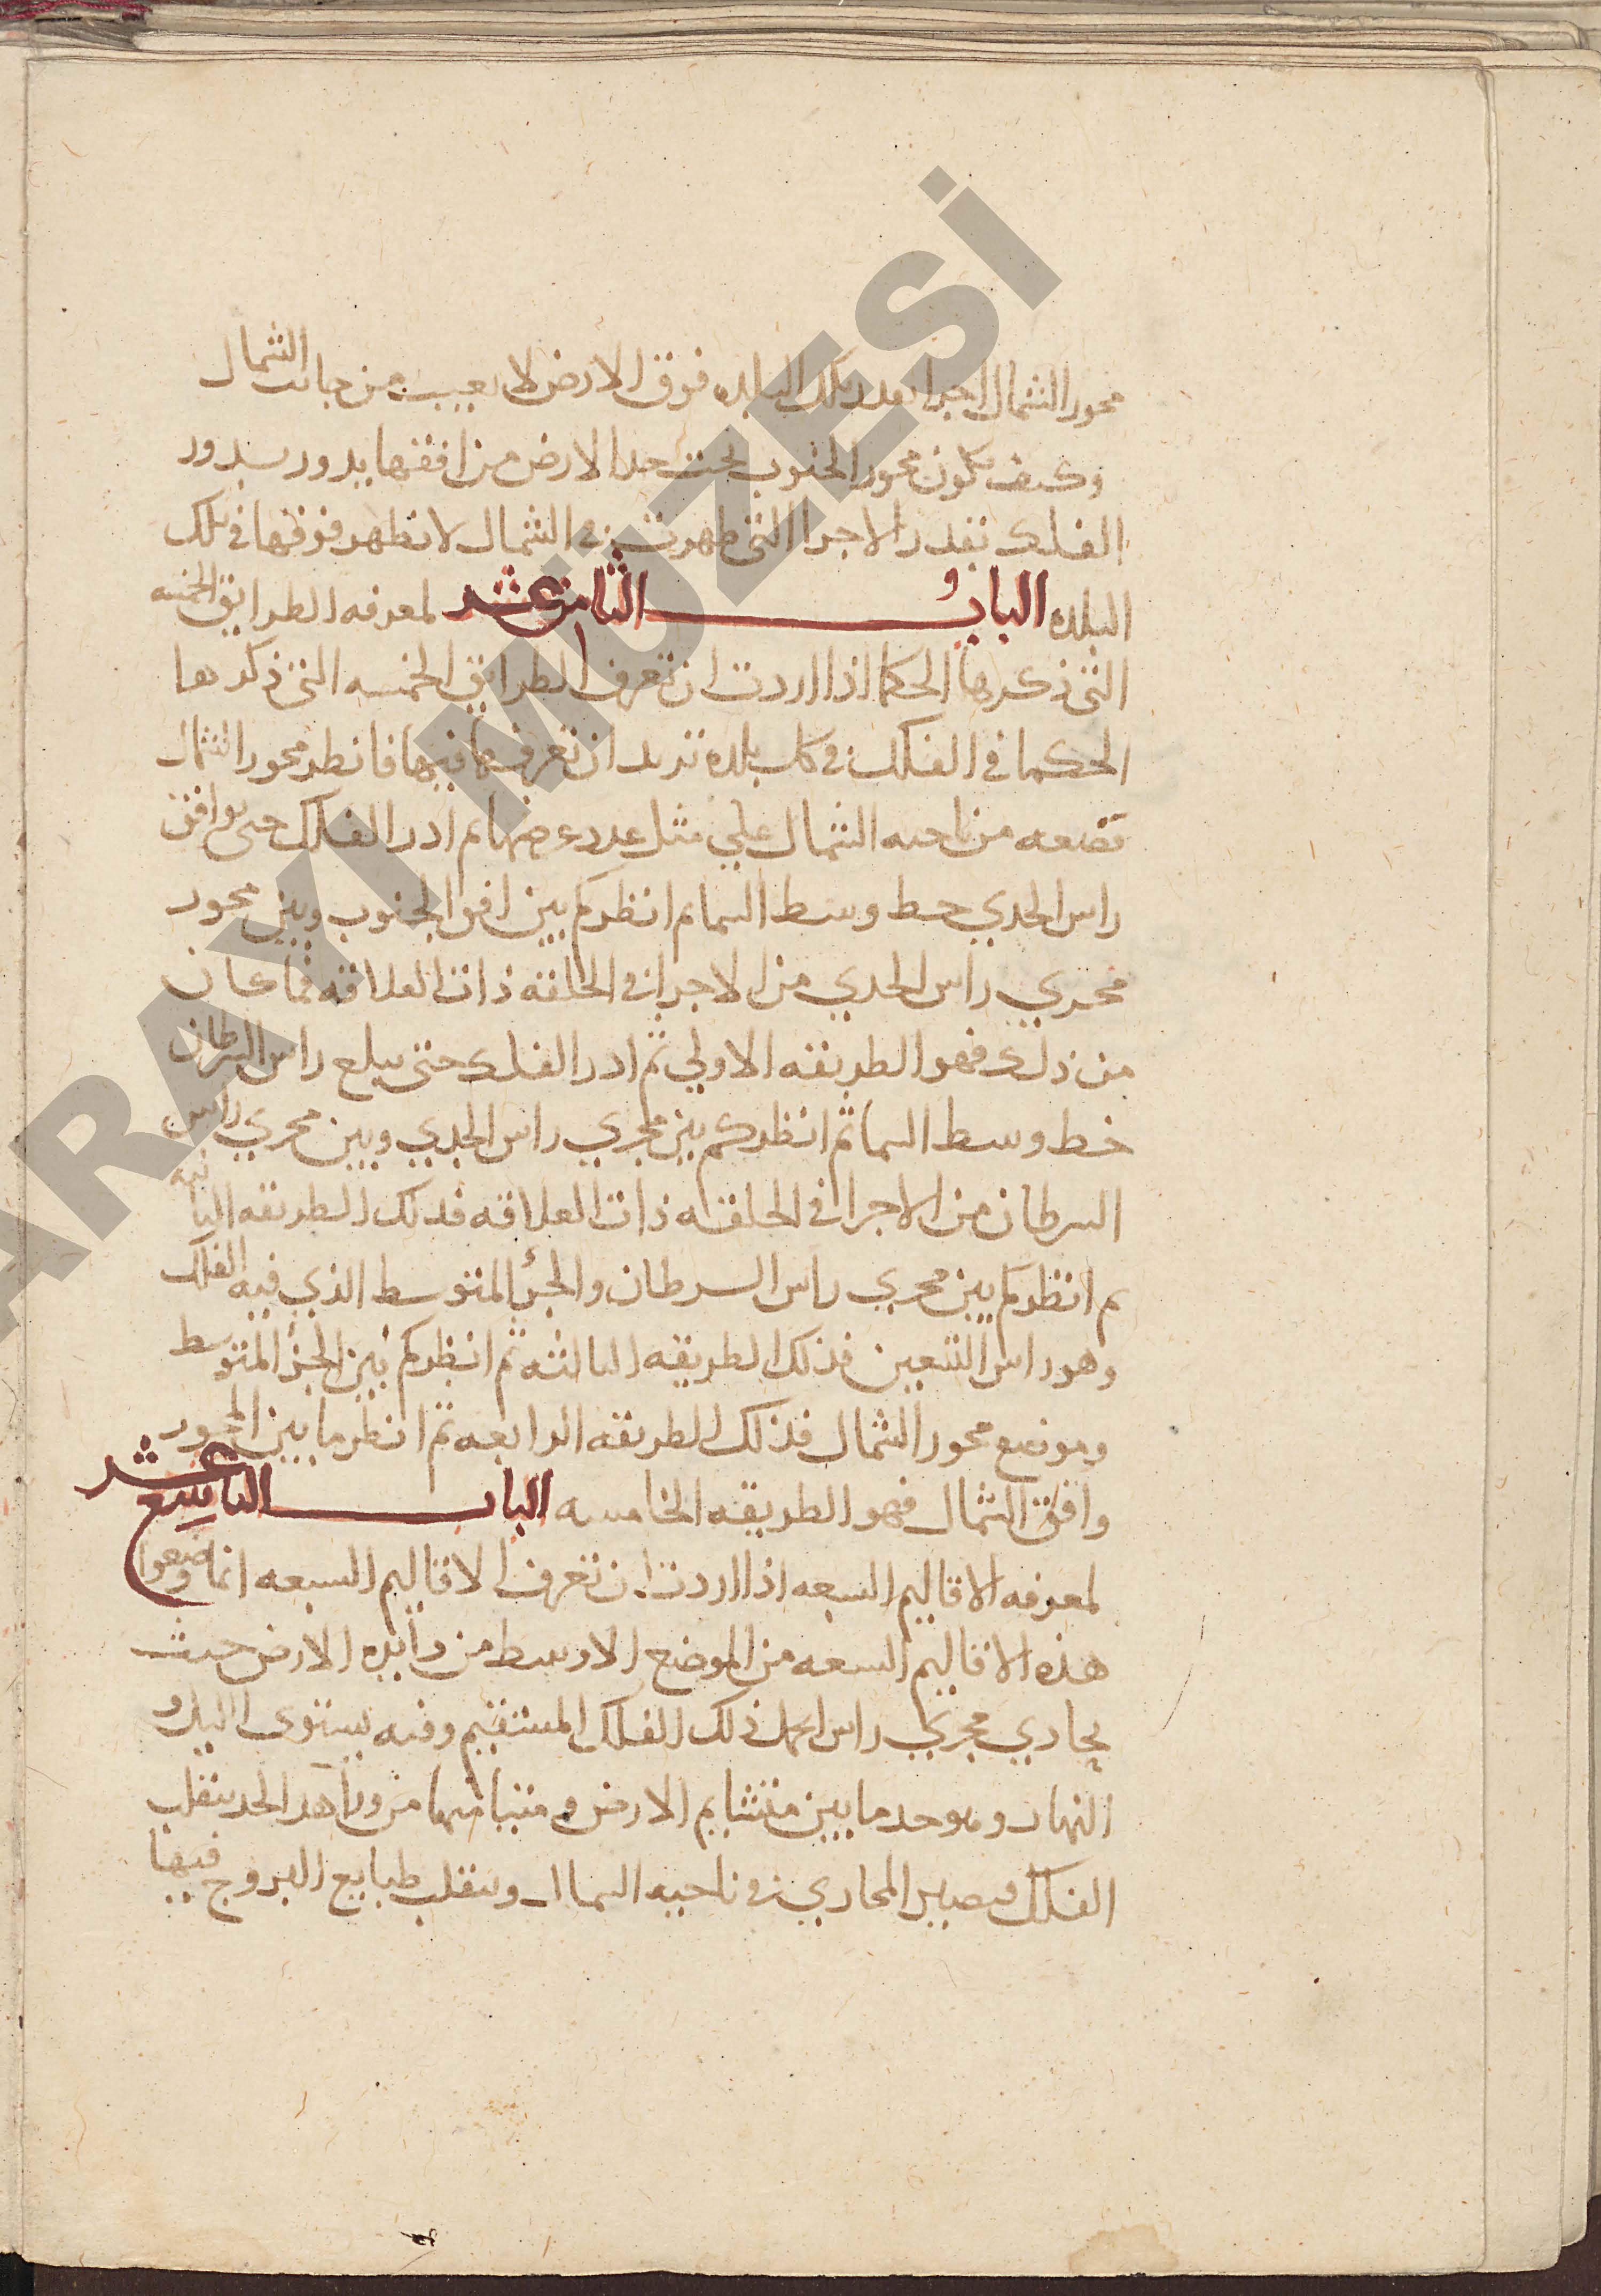 محور الشمال اجزا بعد تلك البلده فوق الارض لا يغيب من جانب الشمال
وكيف يكون محور الجنوب تحت حد الارض من افقها يدور بدور
الفلك بقدر الاجزا التي ظهرت في الشمال لا تظهر فوقها في تلك
البلده الباب الثامن عشر لمعرفه الطرايق الخمسه
التي ذكرها الحكما اذا اردت ان تعرف الطرايق الخمسه التي ذكرها
الحكما في الفلك في كل بلده تريد ان تعرفها فيها فانظر محور الشمال
فضعه من ناحيه الشمال علي مثل عدد عرضها ثم ادر الفلك حتى يوافق
راس الجدي خط وسط السما ثم انظر كم بين افق الجنوب وبين محور
مجري راس الجدي من الاجزا في الحلقه ذات العلاقه فما كان
من ذلك فهو الطريقه الاولي ثم ادر الفلك حتى يبلغ راس السرطان
خط وسط السما ثم انظر كم بين مجري راس الجدي وبين مجري راس
السرطان من الاجزا في الحلقه ذات العلاقه فذلك الطريقه الثانيه
ثم انظر كم بين مجري راس السرطان والجزء المتوسط الذي فيه الفلك
وهو راس التسعين فذلك الطريقه الثالثه ثم انظر كم بين الجزء المتوسط
وموضع محور الشمال فذلك الطريقه الرابعه ثم انظر ما بين المحور
وافق الشمال فهو الطريقه الخامسه الباب التاسع عشر
لمعرفه الاقاليم السبعه اذا اردت ان تعرف الاقاليم السبعه انما وضعوا
هذه الاقاليم السبعه من الموضع الاوسط من دايره الارض حيث
يحاذي مجري راس الحمل ذلك الفلك المستقيم وفيه يستوى الليل و
النهار وهو حد ما بين متشايم الارض ومتيامنها من ورا هذا الحد ينقلب
الفلك فيصير المجاري في ناحيه الشمال وينقلب طبايع البروج فيها